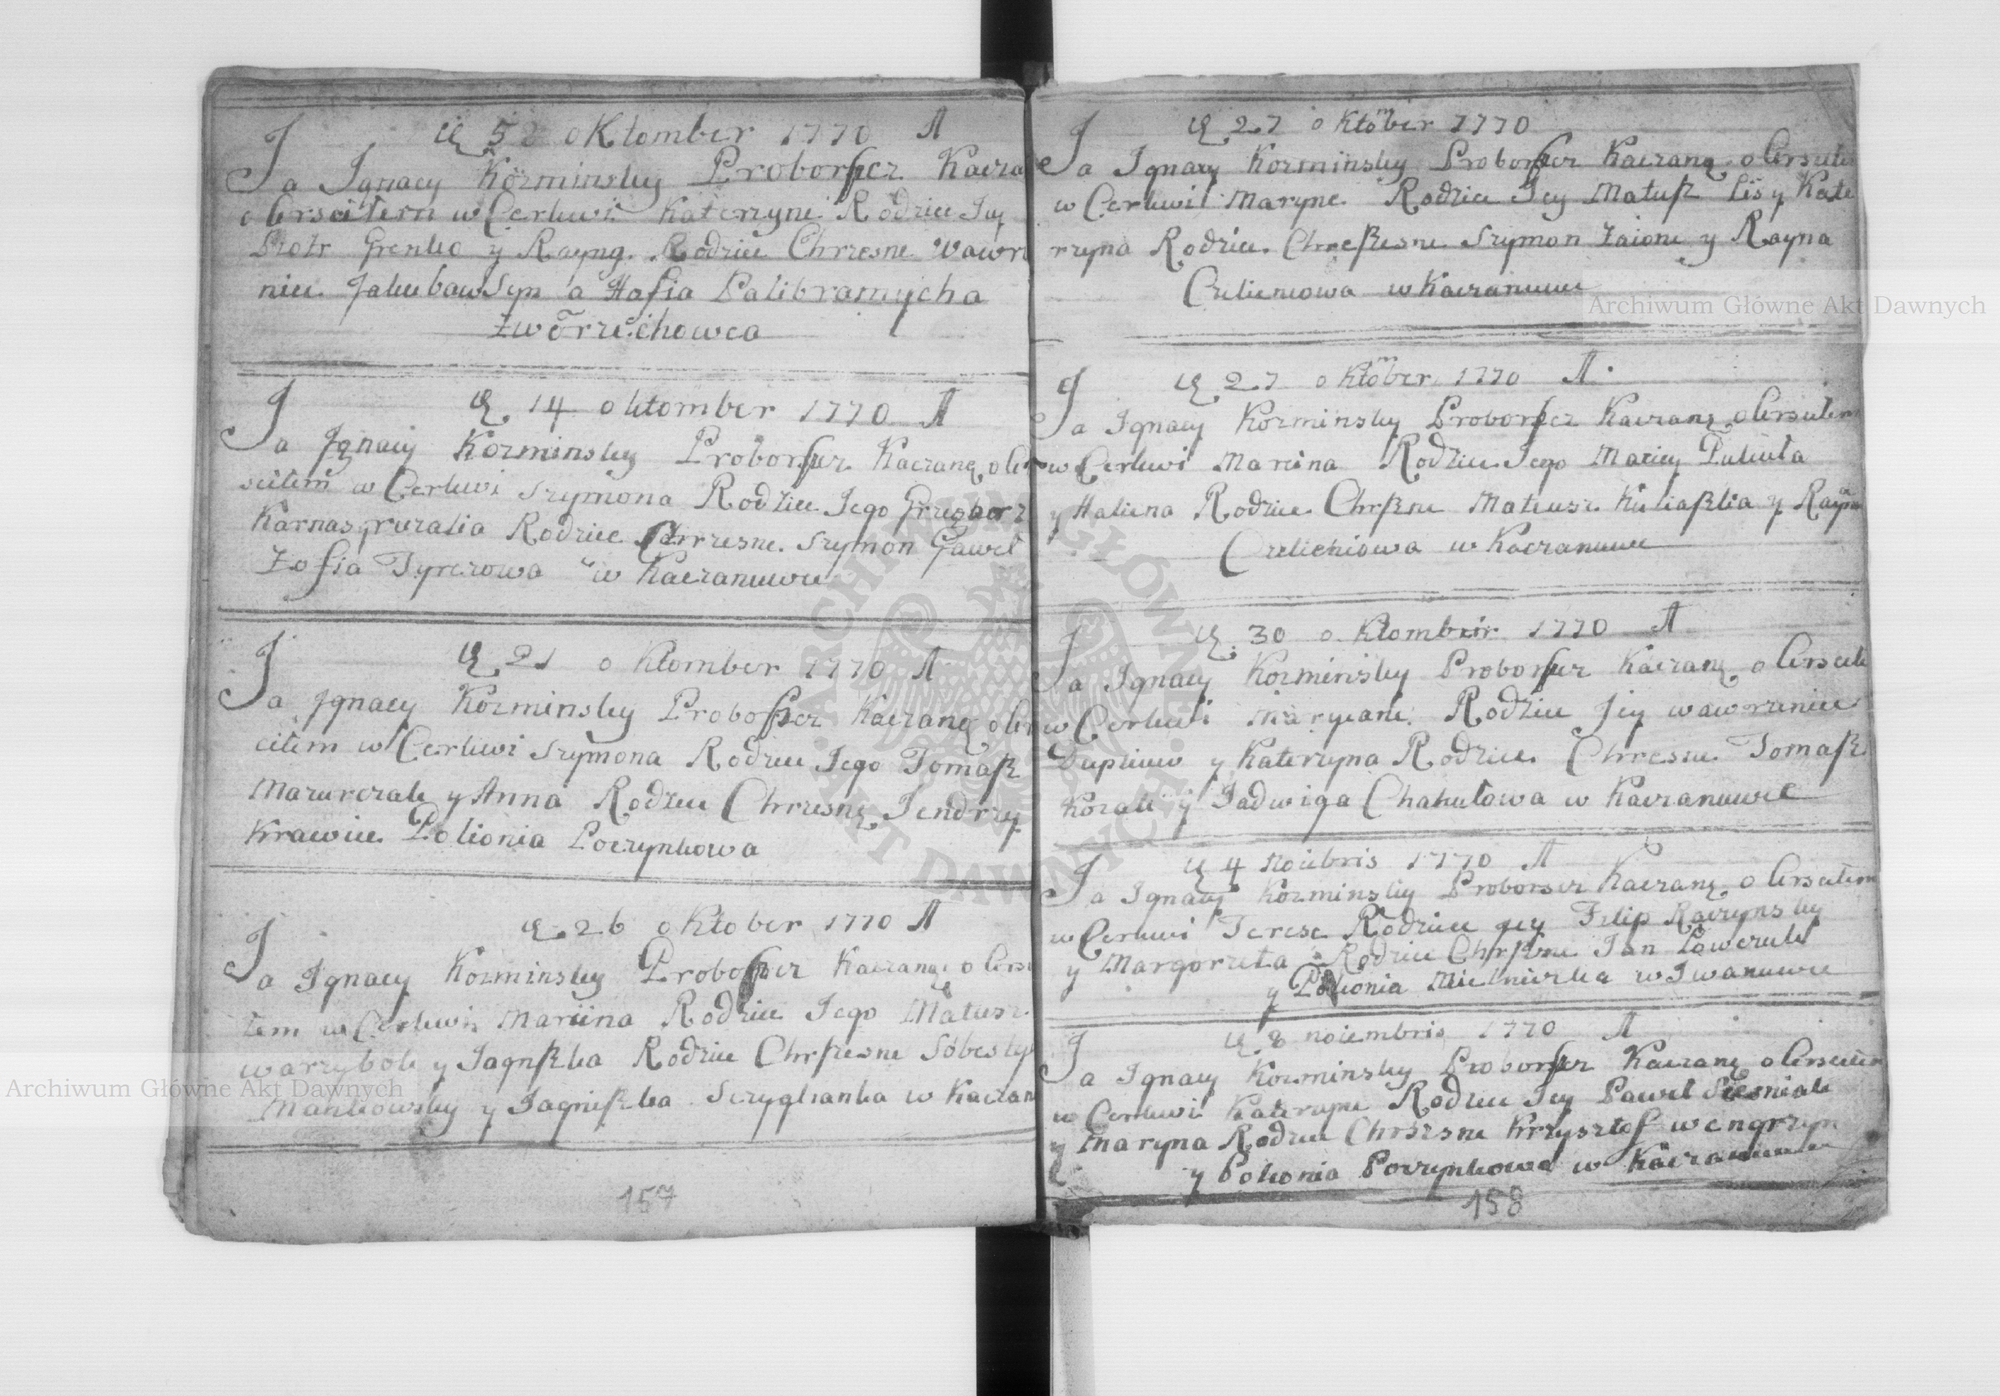 5 oktomber 1770 A
Ja Ignacy Kozminsky Proborszcz Kacza
w Cerkwi Katerzyni Rodzice Jey
Piotr Grenko y Rayna. Rodzice Chrzesne Wawrz
niec Jakubaw Syn a Hafia Palibramycha
14 oktomber 1770 A
Ja Ignacy Kozminsky Proborszcz Kaczane okrz
sciłem w Cerkwi Szymona Rodzice Jego Grzegorz
Karnas Rodzice Chrzesne. Szymon Gaweł
Zofia Tyrczowa w Kaczanuwce
21 oktomber 1770 A
Ja Ignacy Kozminsky Proboszcz Kaczane okrz
ciłem w Cerkwi Szymona Rodzice Jego Tomasz
Mazurczak y Anna Rodzice Chrzesne Jendrzy
Krawiec Polionia Poczynkowa
26 oktober 1770 A
Ja Ignacy Kozminsky Proboszcz Kaczane okrsc
łem w Cerkwi Marcina Rodzice Jego Matusz
warzybok y Jagnszka Rodzice Chrszesne Sobesty
Mankowsky y Jagniszka w Kaczan
157
27 oktöber 1770
Ja Ignacy Kozminsky Proborszcz Kaczane okrsciłe
w Cerkwi Maryne Rodzice Jey Matusz Lis y Kate
rzyna Rodzice Chrzeszesne Szymon Zaionc y Rayna
w Kaczanuwce
27 oktöber 1770 A
Ja Ignacy Kozminsky Proborszcz Kaczane okrsciłem
w Cerkwi Marcina Rodzice Jego Maciey Pukuła
y Halicna Rodzice Chrszne Mateusz y Rayna
w Kaczanuwce
30 oktomber 1770 A
Ja Ignacy Kozminsky Proborszcz Kaczane okrsciłe
w Cerkwi Maryiane Rodzice Jey Wawrzeniec
y Katerzyna Rodzice Chrzesne Tomasz
Kozak y Jadwiga Chakułowa w Kaczanuwce
4 Noiebris 1770 A
Ja Ignacy Kozminsky Proborszcz Kaczane okrsciłem
w Cerkwi Terese Rodzice Jey Filip Raczynsky
y Margorzeta Rodzice Chrszne Jan
y Polionia Mielniczka w Iwanuwce
8 noiembris 1770 A
Ja Ignacy Kozminsky Proborszcz Kaczane okrsciłem
w Cerkwi Katerzyne Rodzice Jey Paweł
y Maryna Rodzice Chrszesne Krzysztof wengrzyn
y Polionia Poczynkowa w Kaczanuwce
158
Archiwum Główne Akt Dawnych
Archiwum Główne Akt Dawnych
ARCHIWUM GŁÓWNE AKT DAWNYCH